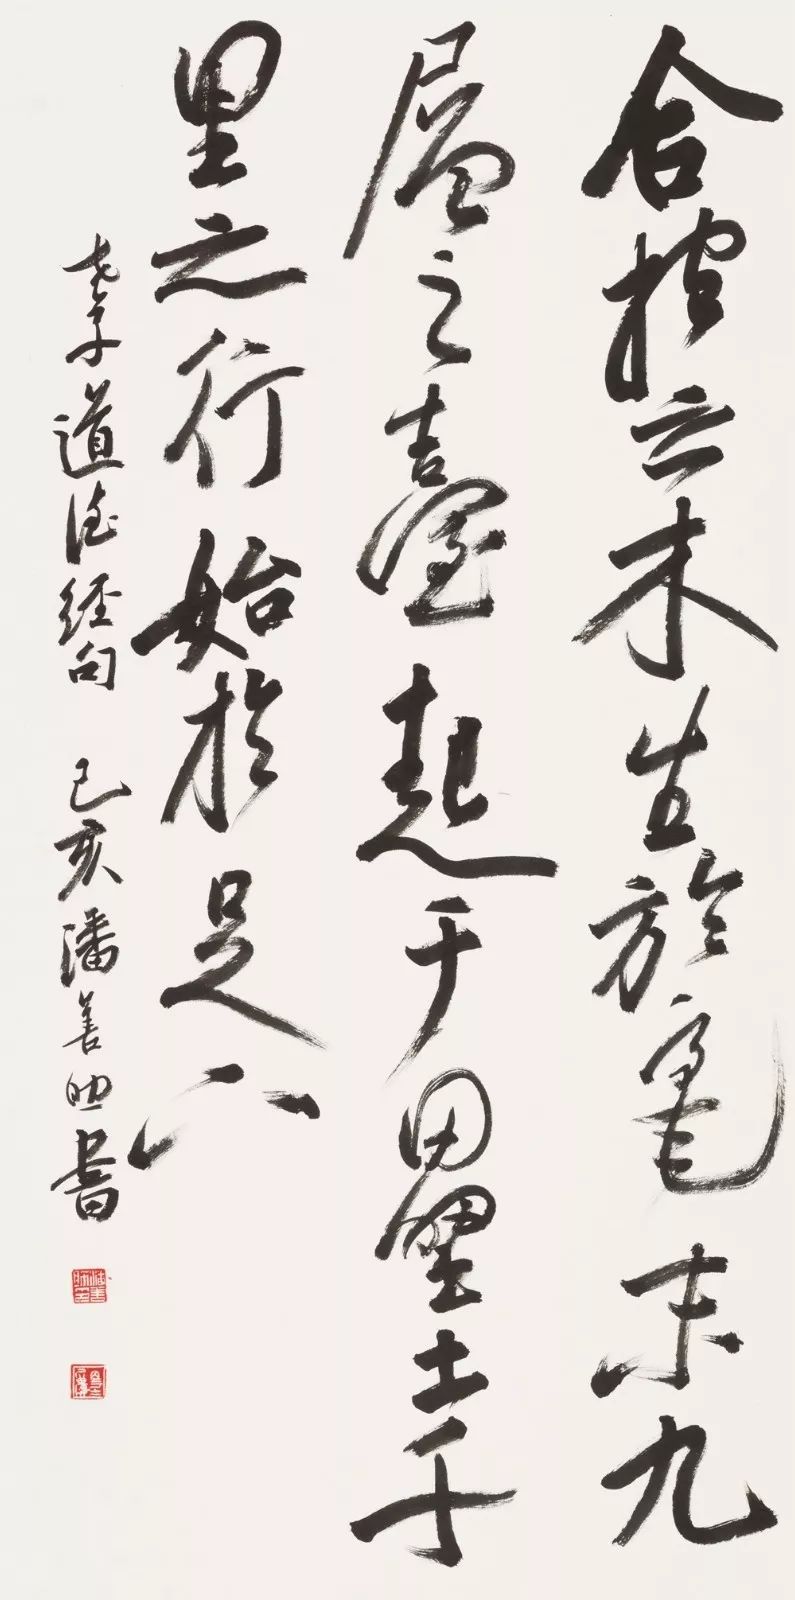 合抱之木生於毫末九
層之臺起于壘土千
里之行始於足下
老子道德經句 己亥潘善助書